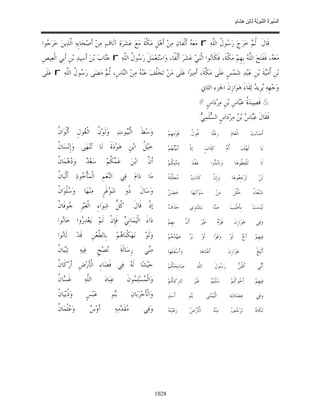 السيرة النبوية لابن هشام
قَالَ ثُمّ خَرَجَ رَسُولُ اللّهِ مَعَهُ أَلْفَانِ مِنْ أَهْلِ مَكّةَ مَعَ عَشَرَةِ آلَافٍ مِنْ أَصْحَابِهِ الّذِينَ خَرَجُوا
مَعَهُ، فَفَتَحَ اللّهُ بِهِمْ مَكّةَ، فَكَانُوا اثْنَيْ عَشَرَ أَلْفًا، وَاسْتَعْمَلَ رَسُولُ اللّهِ عَتّابَ بْنَ أَسِيدِ بْنِ أَبِي الْعِيصِ
بْنِ أُمَيّةَ بْنِ عَبْدِ شَمْسٍ عَلَى مَكّةَ، أَمِيرًا عَلَى مَنْ تَخَلّفَ عَنْهُ مِنْ النّاسِ، ثُمّ مَضَى رَسُولُ اللّهِ عَلَى
وَجْهِهِ يُرِيدُ لِقَاءَ هَوَازِنَ الجزء الثاني
قَصِيدَةُ عَبّاسِ بْنِ مِرْدَاسٍ
فَقَالَ عَبّاسُ بْنُ مِرْدَاسٍ السّلَمِيّ
أَصَابَتْ الْعَامَ رِعْلًا غُولُ قَوْمِهِمْ وَسْطَ الْبُيُوتِ وَلَوْنُ الْغُولِ أَلْوَانُ
يَا لَهْفَ أُمّ كِلَابٍ إذْ تُبَيّتُهُمْ خَيْلُ ابْنِ هَوْذَةَ لَا تُنْهَى وَإِنْسَانُ
لَا تَلْفِظُوهَا وَشُدّوا عَقْدَ ذِمّتِكُمْ أَنّ ابْنَ عَمّكُمْ سَعْدٌ وَدُهْمَانُ
لَنْ تَرْجِعُوهَا وَإِنْ كَانَتْ مُجَلّلَةً مَا دَامَ فِي النّعَمِ الْمَأْخُوذِ أَلْبَانُ
شَنْعَاءُ جُلّلَ مِنْ سَوْآتِهَا حَضَنٌ وَسَالَ ذُو شَوْغَرٍ مِنْهَا وَسُلْوَانُ
لَيْسَتْ بِأَطْيَبَ مِمّا يَشْتَوِي حَذَفٌ إذْ قَالَ كُلّ شِوَاءِ الْعَيْرِ جُوفَانُ
وَفِي هَوَازِنَ قَوْمٌ غَيْرَ أَنّ بِهِمْ دَاءَ الْيَمَانِيّ فَإِنْ لَمْ يَغْدِرُوا خَانُوا
فِيهِمْ أَخٌ لَوْ وَفَوْا أَوْ بَرّ عَهْدُهُمْ وَلَوْ نَهَكْنَاهُمْ بِالطّعْنِ قَدْ لَانُوا
أَبْلِغْ هَوَازِنَ أَعْلَاهَا وَأَسْفَلَهَا مِنّي رِسَالَةَ نُصْحٍ فِيهِ تِبْيَانُ
أَنّي أَظُنّ رَسُولَ اللّهِ صَابِحَكُمْ جَيْشًا لَهُ فِي فَضَاءِ الْأَرْضِ أَرْكَانُ
فِيهِمْ أَخُوكُمْ سُلَيْمٌ غَيْرَ تَارِكِكُمْ وَالْمُسْلِمُونَ عِبَادَ اللّهِ غَسّانُ
وَفِي عِضَادَتِهِ الْيُمْنَى بَنُو أَسَدٍ وَالْأَجْرَبَانِ بَنُو عَبْسٍ وَذُبْيَانُ
تَكَادُ تَرْجُفُ مِنْهُ الْأَرْضُ رَهْبَتَهُ وَفِي مُقَدّمِهِ أَوْسٌ وَعُثْمَانُ
1028